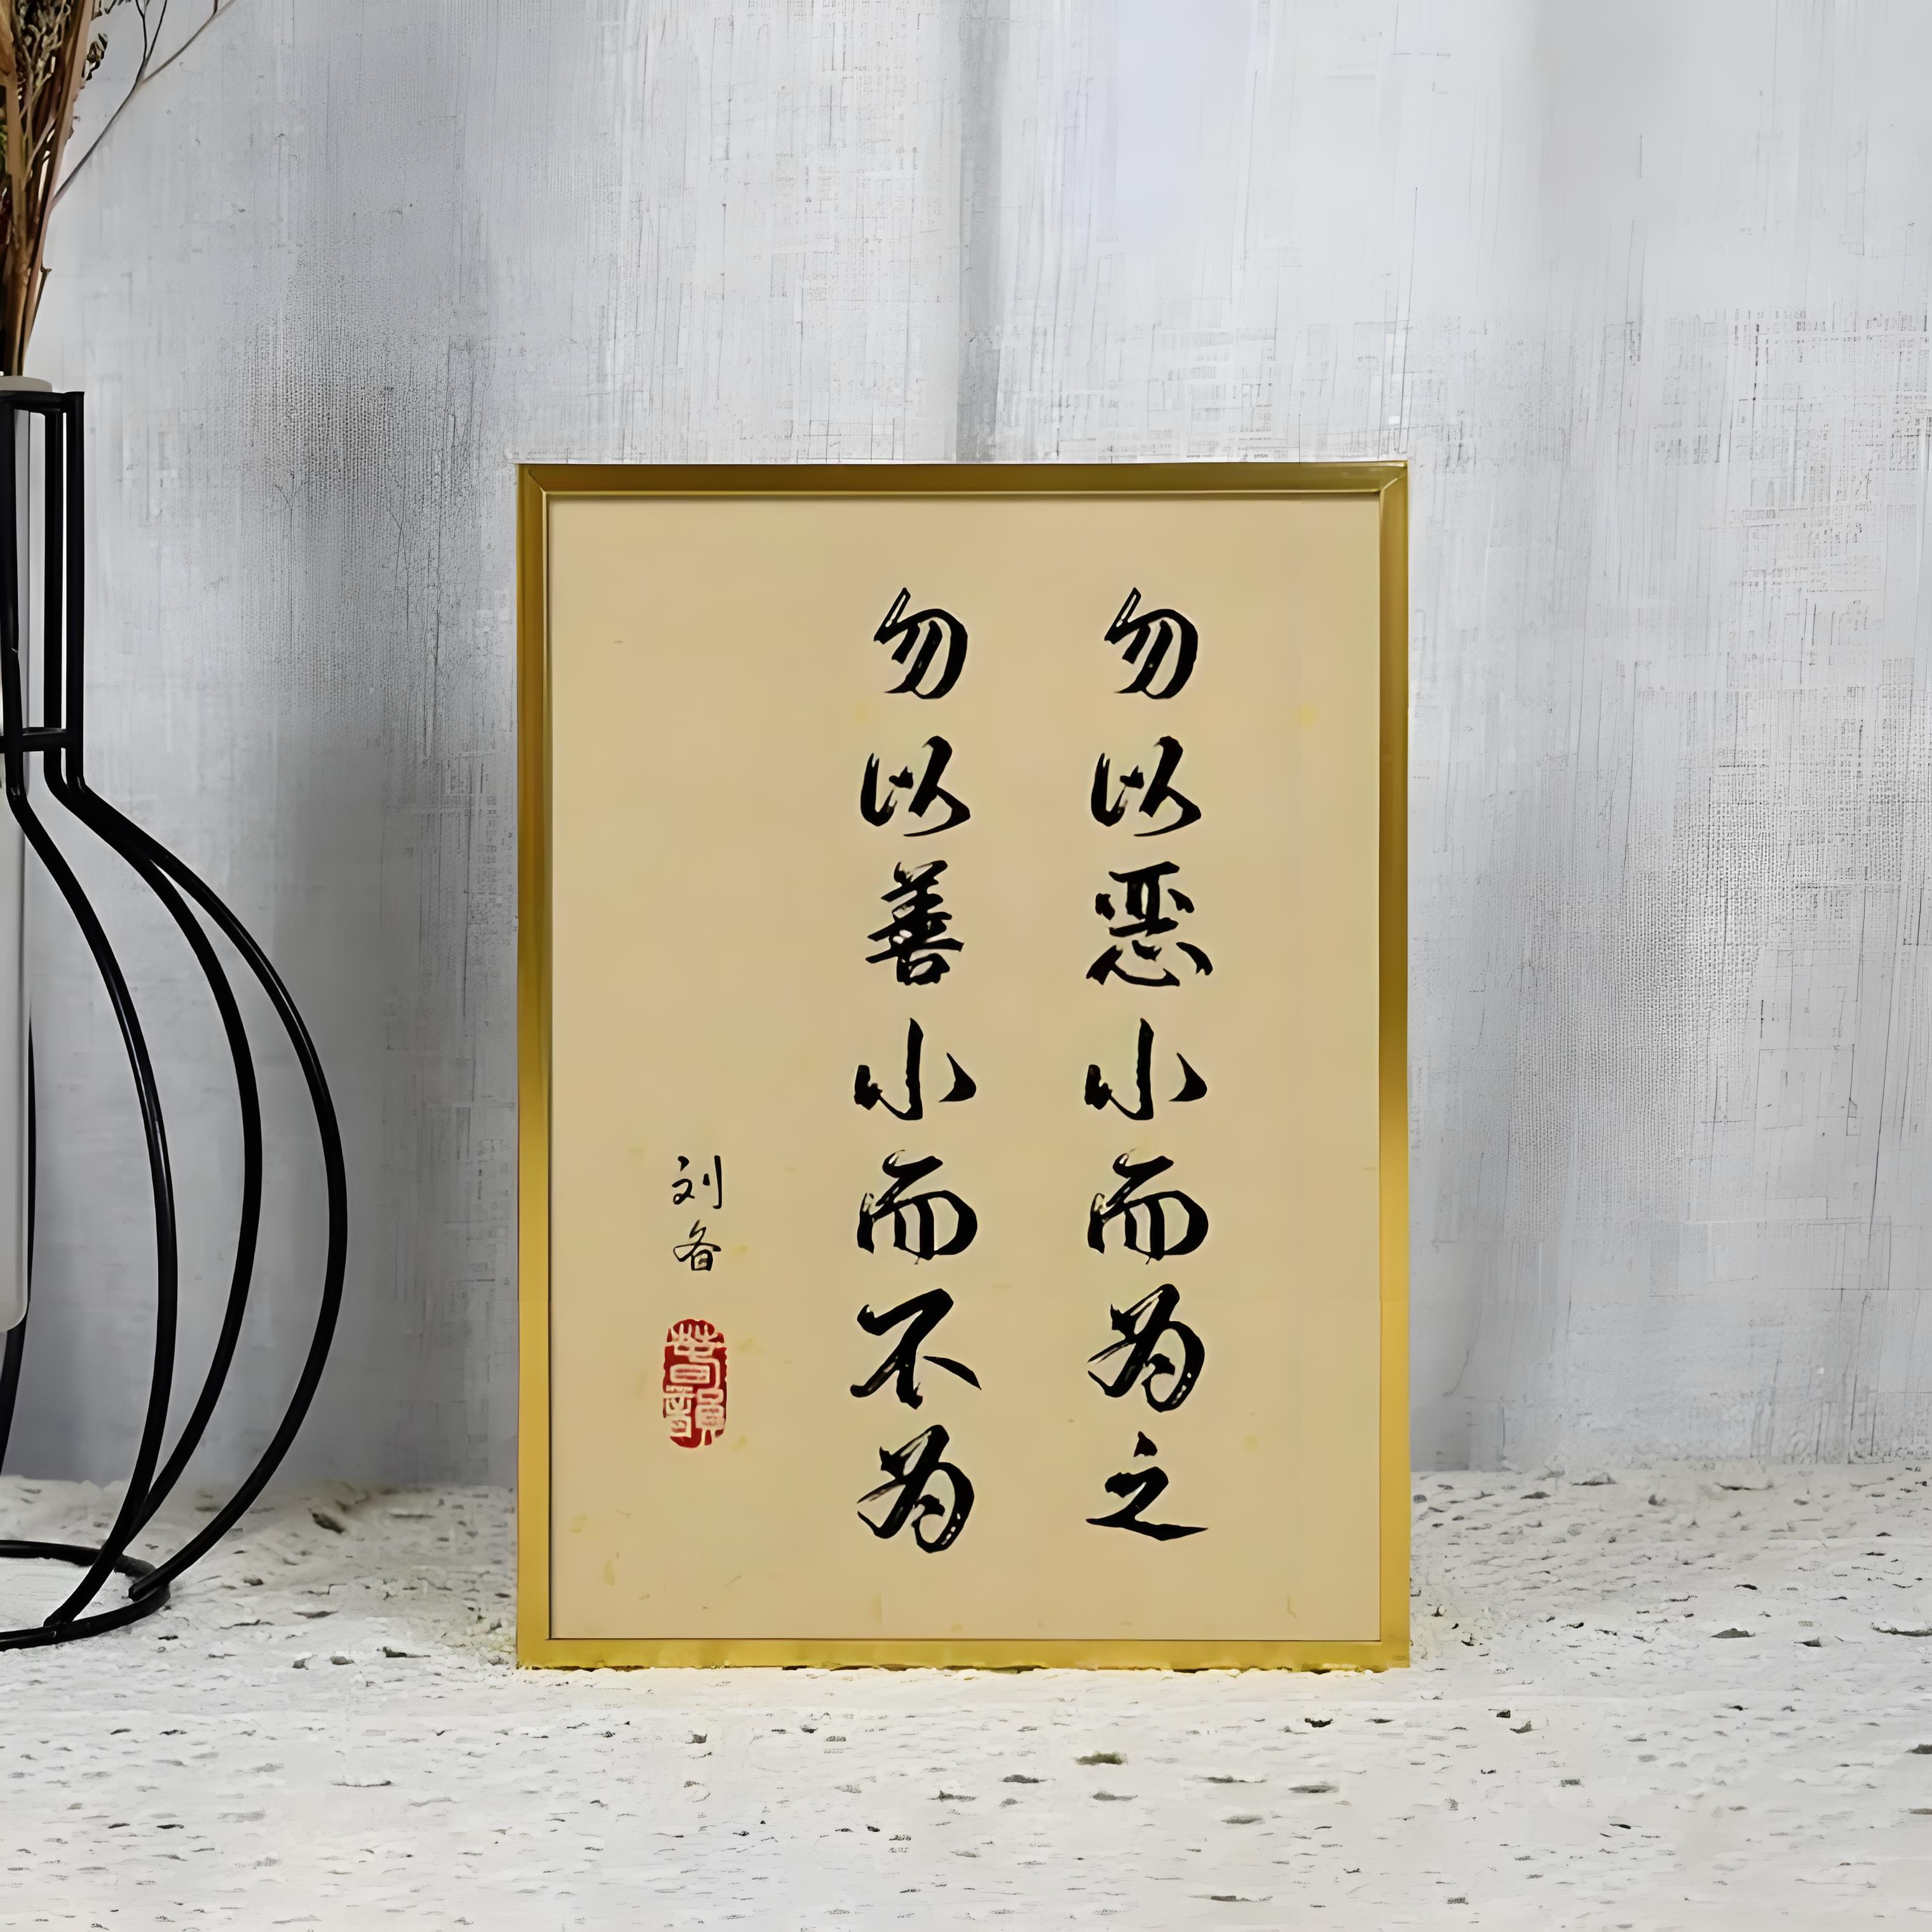 勿以恶小而为之
勿以善小而不为
刘备